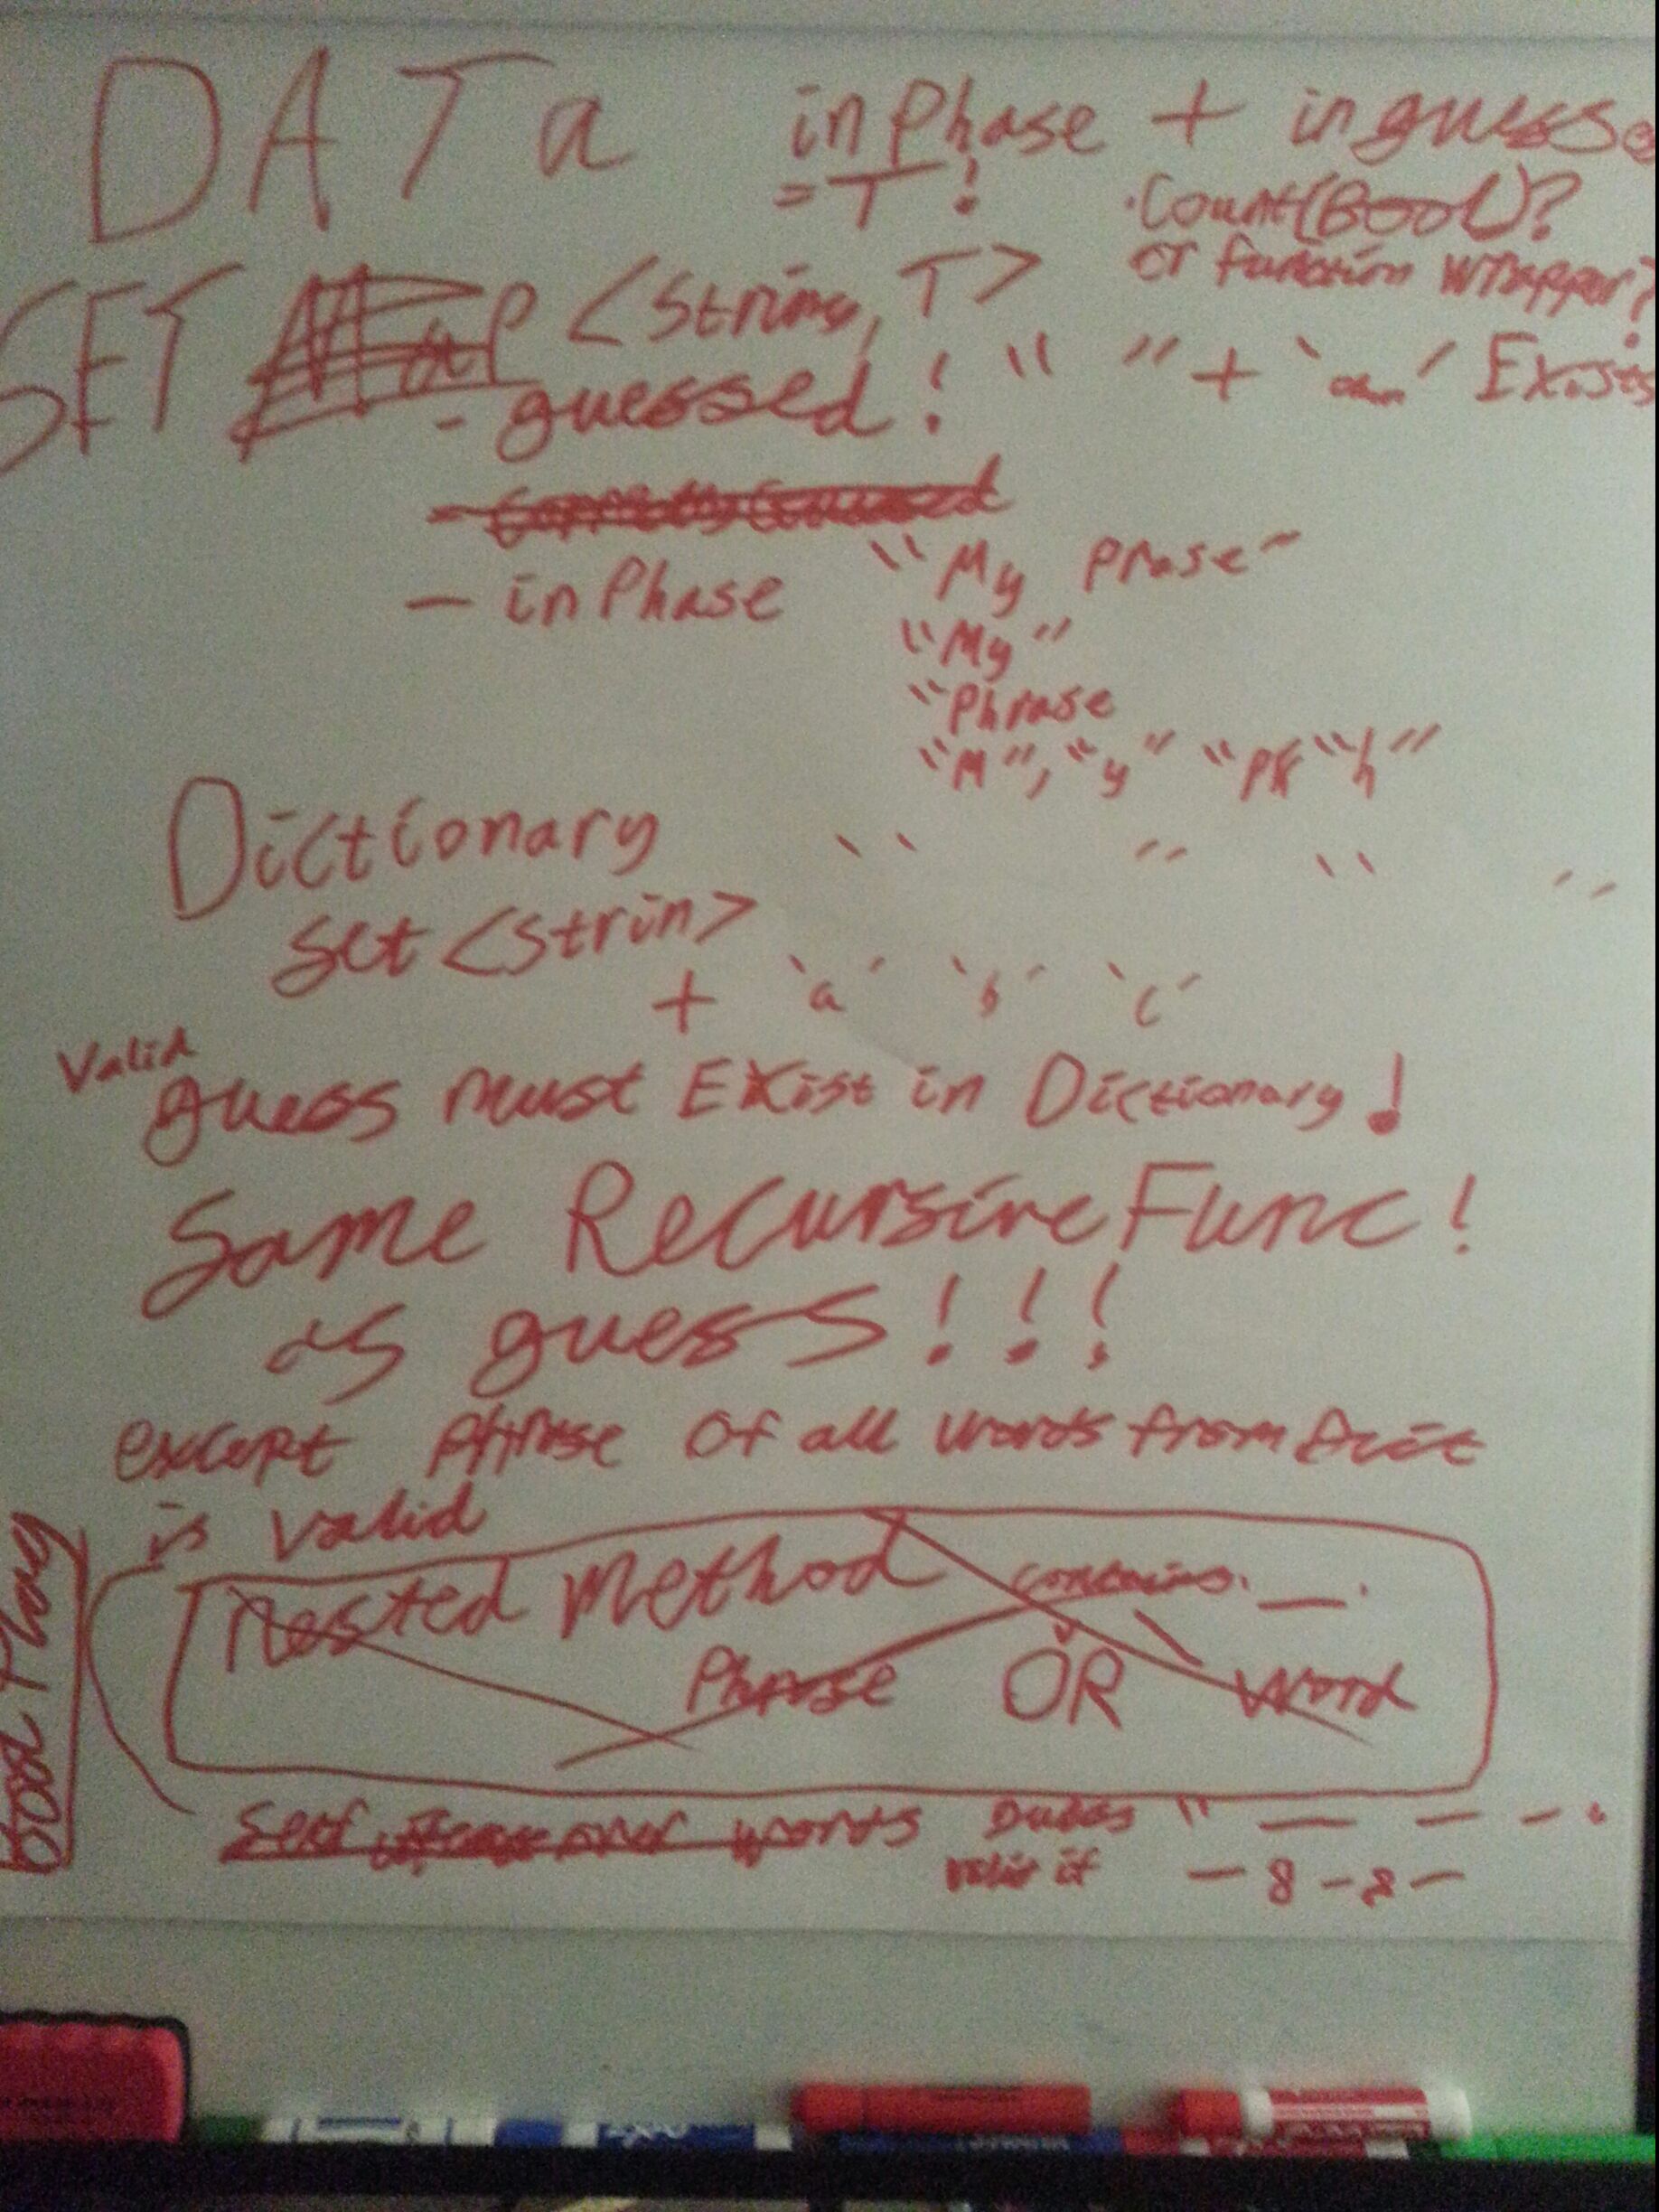 DATa inPhase + inguess
= T! .Count(Bool)?
or function wrapper?
SET Map <String, T>
- guessed! " " + ' ' Exists
- inPhase "My Prase"
"My"
"Phrase
"M", "y" "Ph "h"
Dictionary " " " "
set <strin>
+ 'a' 'b' 'c'
Valid
guess must Exist in Dictionary!
Same Recursive Func!
as guess!!!
except phrase of all words from
is valid
Nested Method contains. __.
Phrase OR word
over words " — — - "
valid if - 8 - 8 -